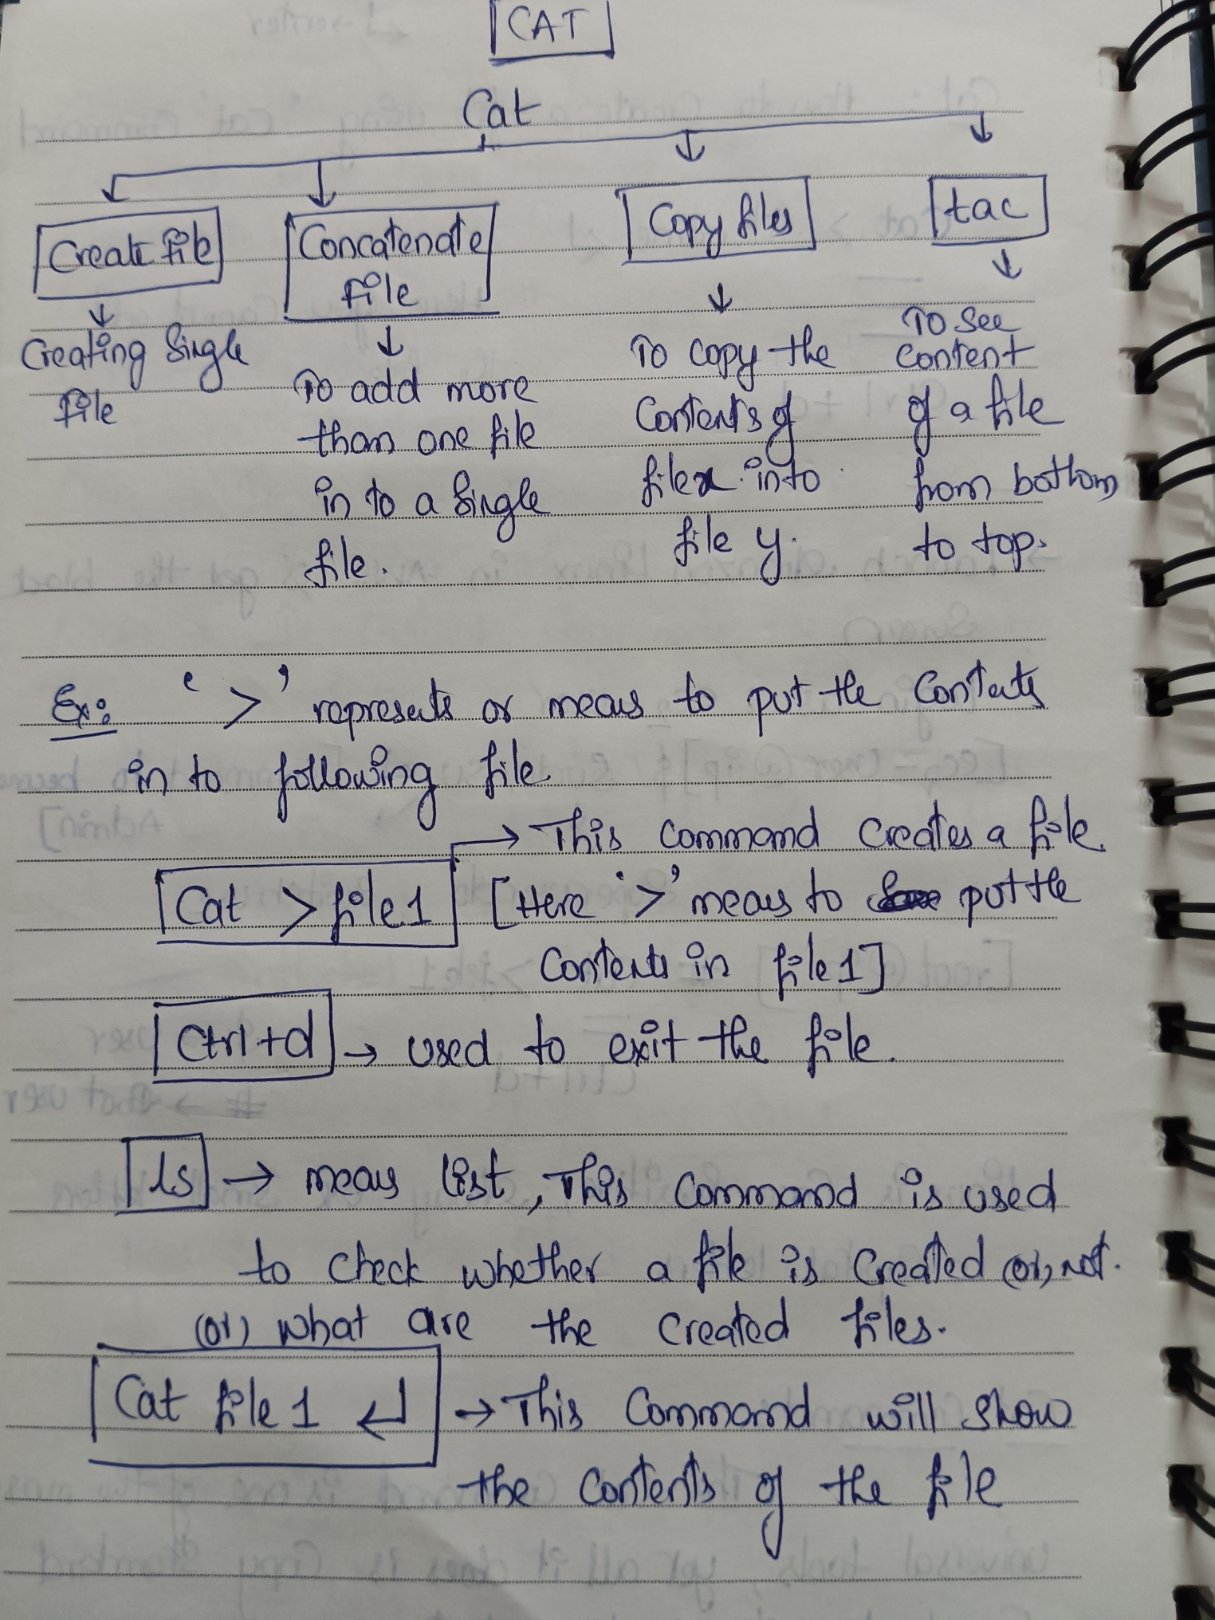 CAT
Cat
Create file
Concatenate
File
Copy files
tac
Creating Single
File
To add more
than one file
in to a Single
file.
To copy the
Contents of
file x into
file y.
To See
content
of a file
from bottom
to top.
Ex: '>' represents or means to put the Contents
in to following file.
Cat > file1 → This Command Creates a file.
[Here '>' means to put the
Contents in file1]
Ctrl+d → used to exit the file.
ls → means list, This Command is used
to check whether a file is Created (or) not.
(or) what are the Created files.
Cat file 1 ↵ → This Command will show
the Contents of the file